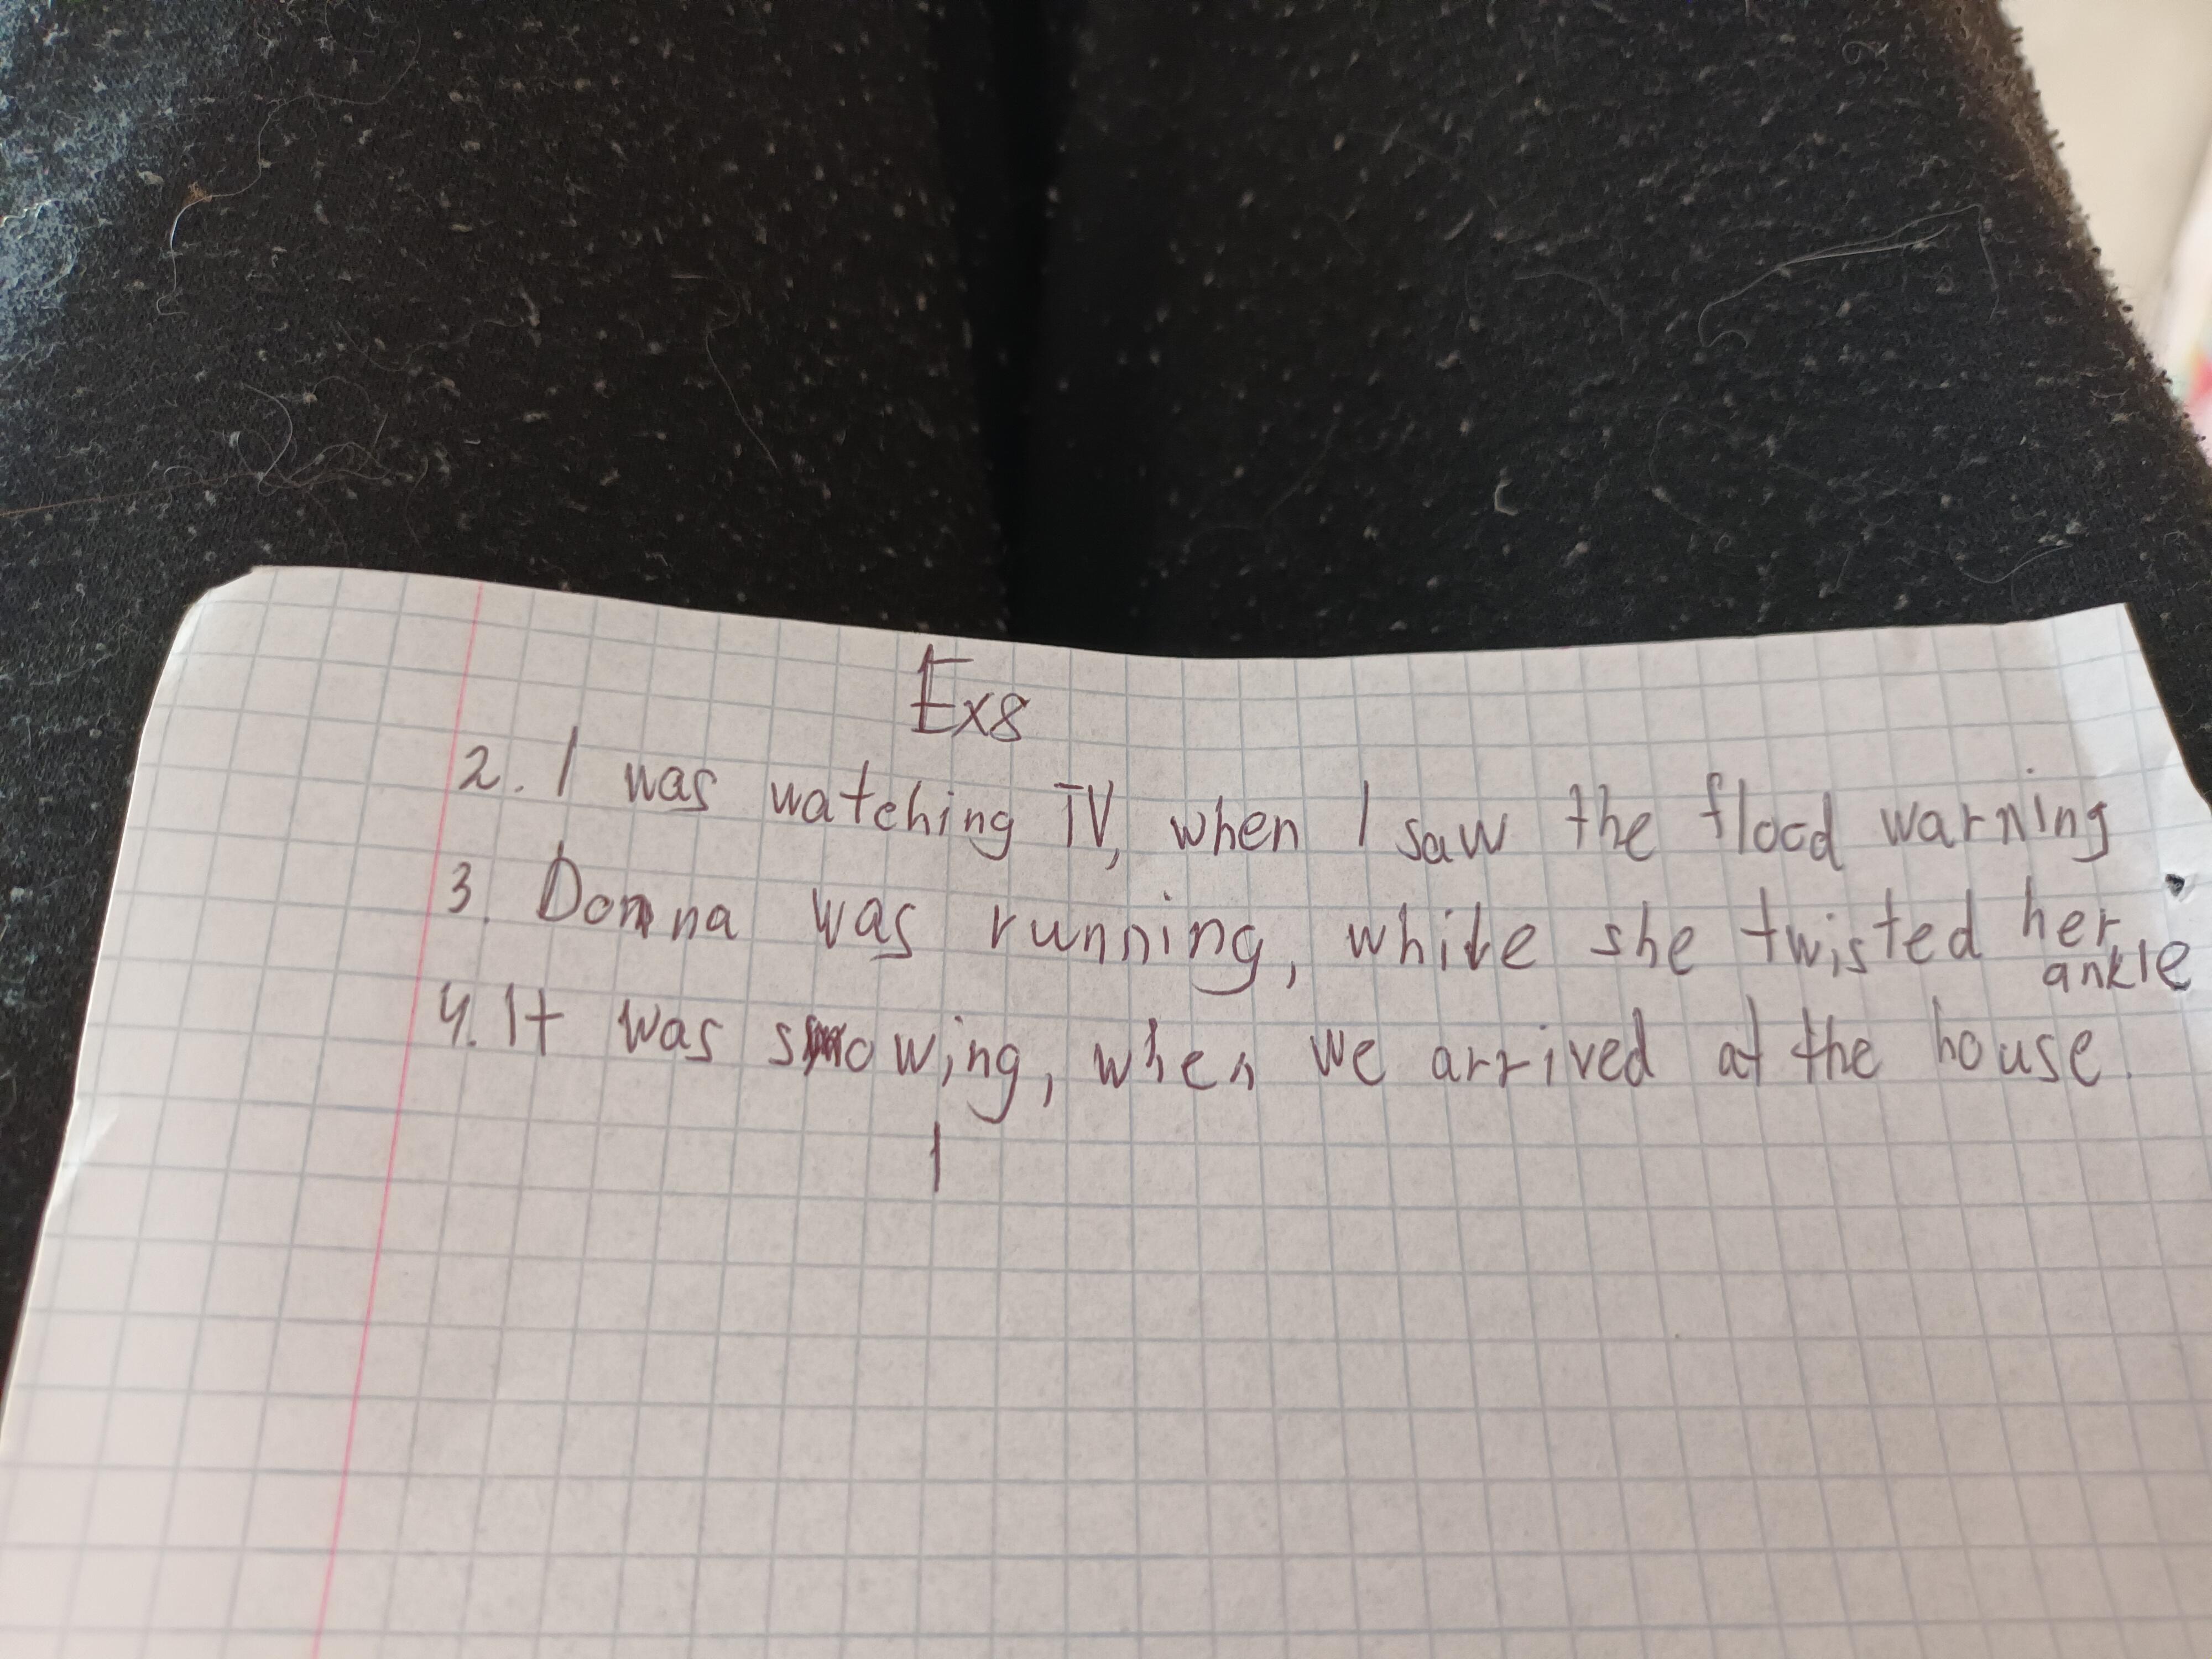 Ex8
2. I was watching TV, when I saw the flood warning
3. Donna was running, while she twisted her
ankle
4. It was snowing, when we arrived at the house.